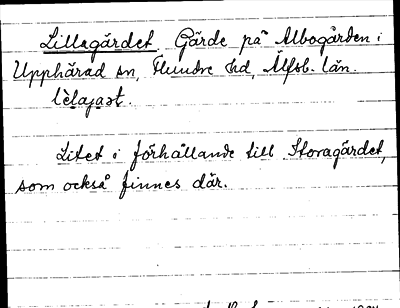 Lillegärdet. Gärde på Albogården i
Upphärad sn, Flundre hd, Älfsb. län.
lèlajaɜt.
Litet i förhållande till Storagärdet,
som också finnes där.